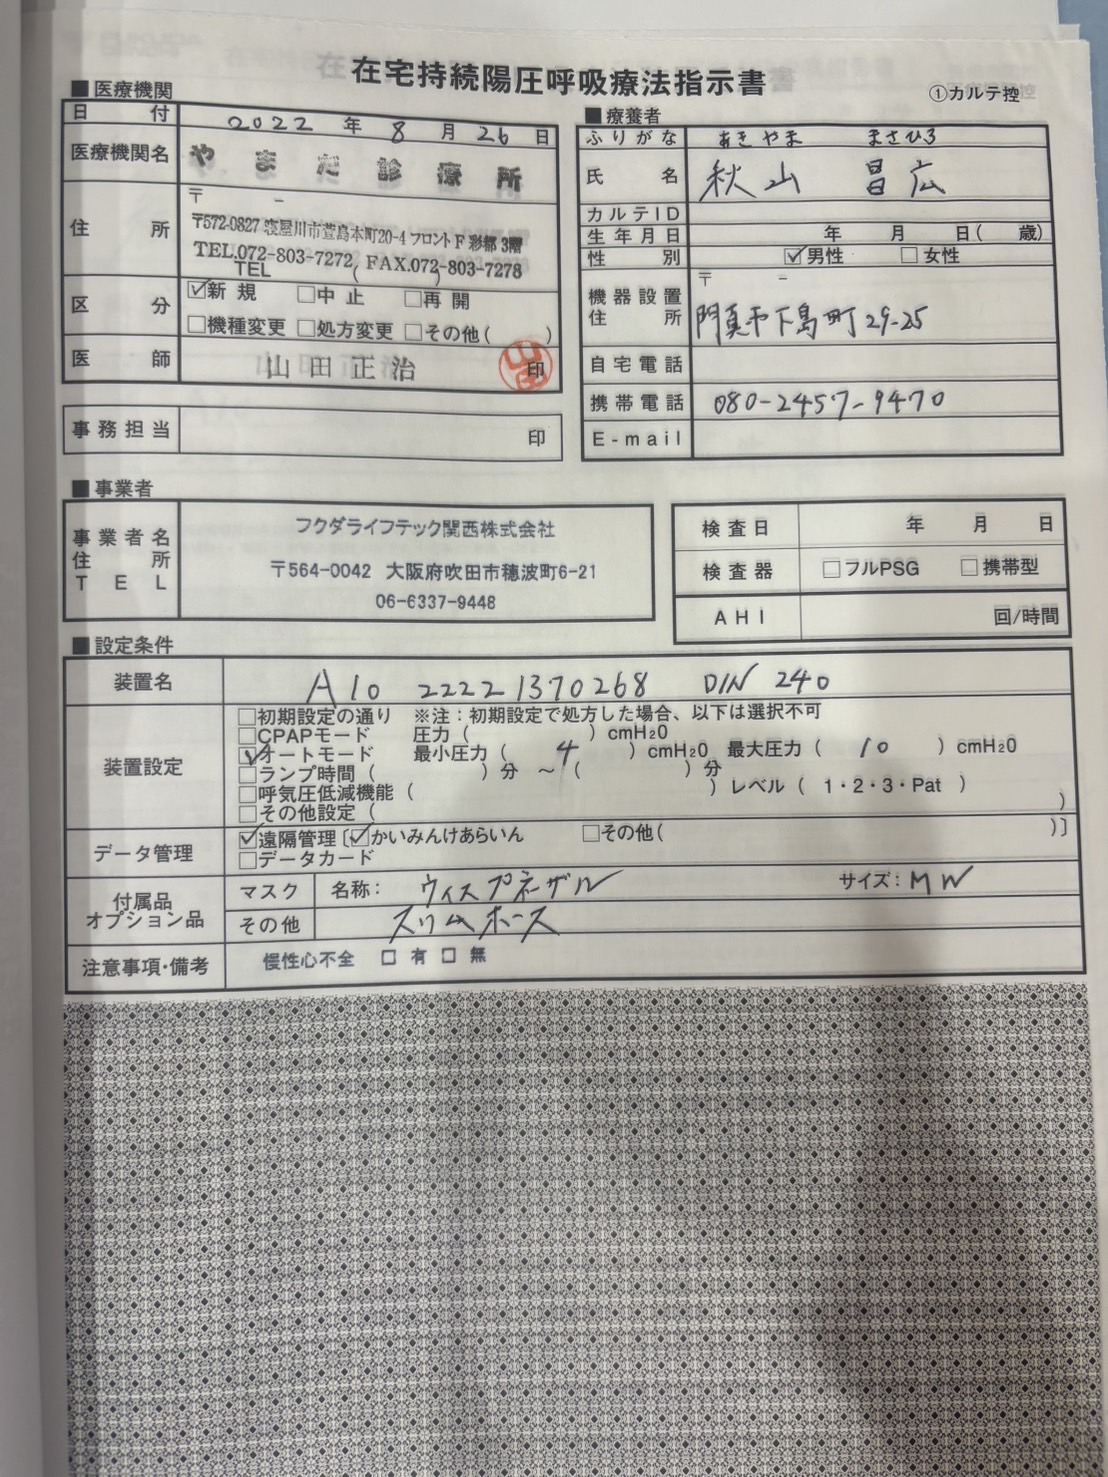 在宅持続陽圧呼吸療法指示書
①カルテ控
■医療機関
日付 2022 年 8 月 26 日
医療機関名 やまだ診療所
住所 〒 -
〒572-0827 寝屋川市萱島本町20-4 フロントF 彩都 3階
TEL.072-803-7272 FAX.072-803-7278
TEL ( )
区分 ☑新規 □中止 □再開
□機種変更 □処方変更 □その他( )
医師 山田正治 印
事務担当 印
■療養者
ふりがな あきやま まさひろ
氏名 秋山 昌広
カルテID
生年月日 年 月 日( 歳)
性別 ☑男性 □女性
機器設置住所 〒 -
門真市下島町29-25
自宅電話
携帯電話 080-2457-9470
E-mail
■事業者
事業者名 フクダライフテック関西株式会社
住所 〒564-0042 大阪府吹田市穂波町6-21
TEL 06-6337-9448
検査日 年 月 日
検査器 □フルPSG □携帯型
AHI 回/時間
■設定条件
装置名 A10 22221370268 DIN 240
装置設定 □初期設定の通り ※注：初期設定で処方した場合、以下は選択不可
□CPAPモード 圧力( ) cmH2O
☑オートモード 最小圧力( 4 ) cmH2O 最大圧力( 10 ) cmH2O
□ランプ時間( ) 分 ～( ) 分
□呼気圧低減機能( ) レベル( 1・2・3・Pat )
□その他設定( )
データ管理 ☑遠隔管理〔☑かいみんけあらいん □その他( )〕
□データカード
付属品 オプション品 マスク 名称： ウィスプネーザル サイズ：MW
その他 スリムホース
注意事項・備考 慢性心不全 □ 有 □ 無